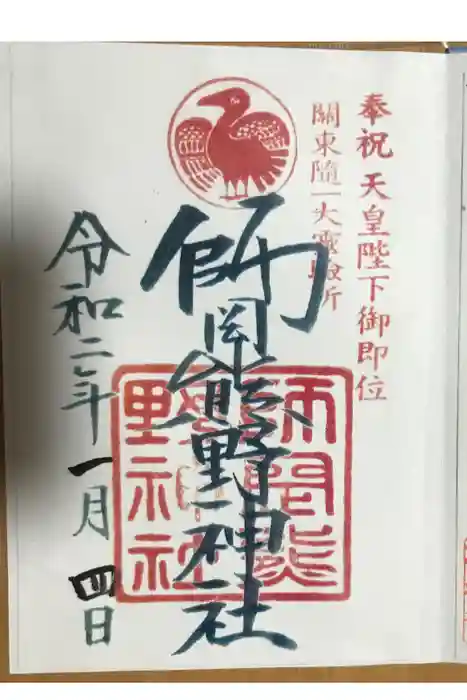 奉祝天皇陛下御即位
關東随一大霊験所
師岡熊野神社
師岡熊野神社
令和二年一月四日